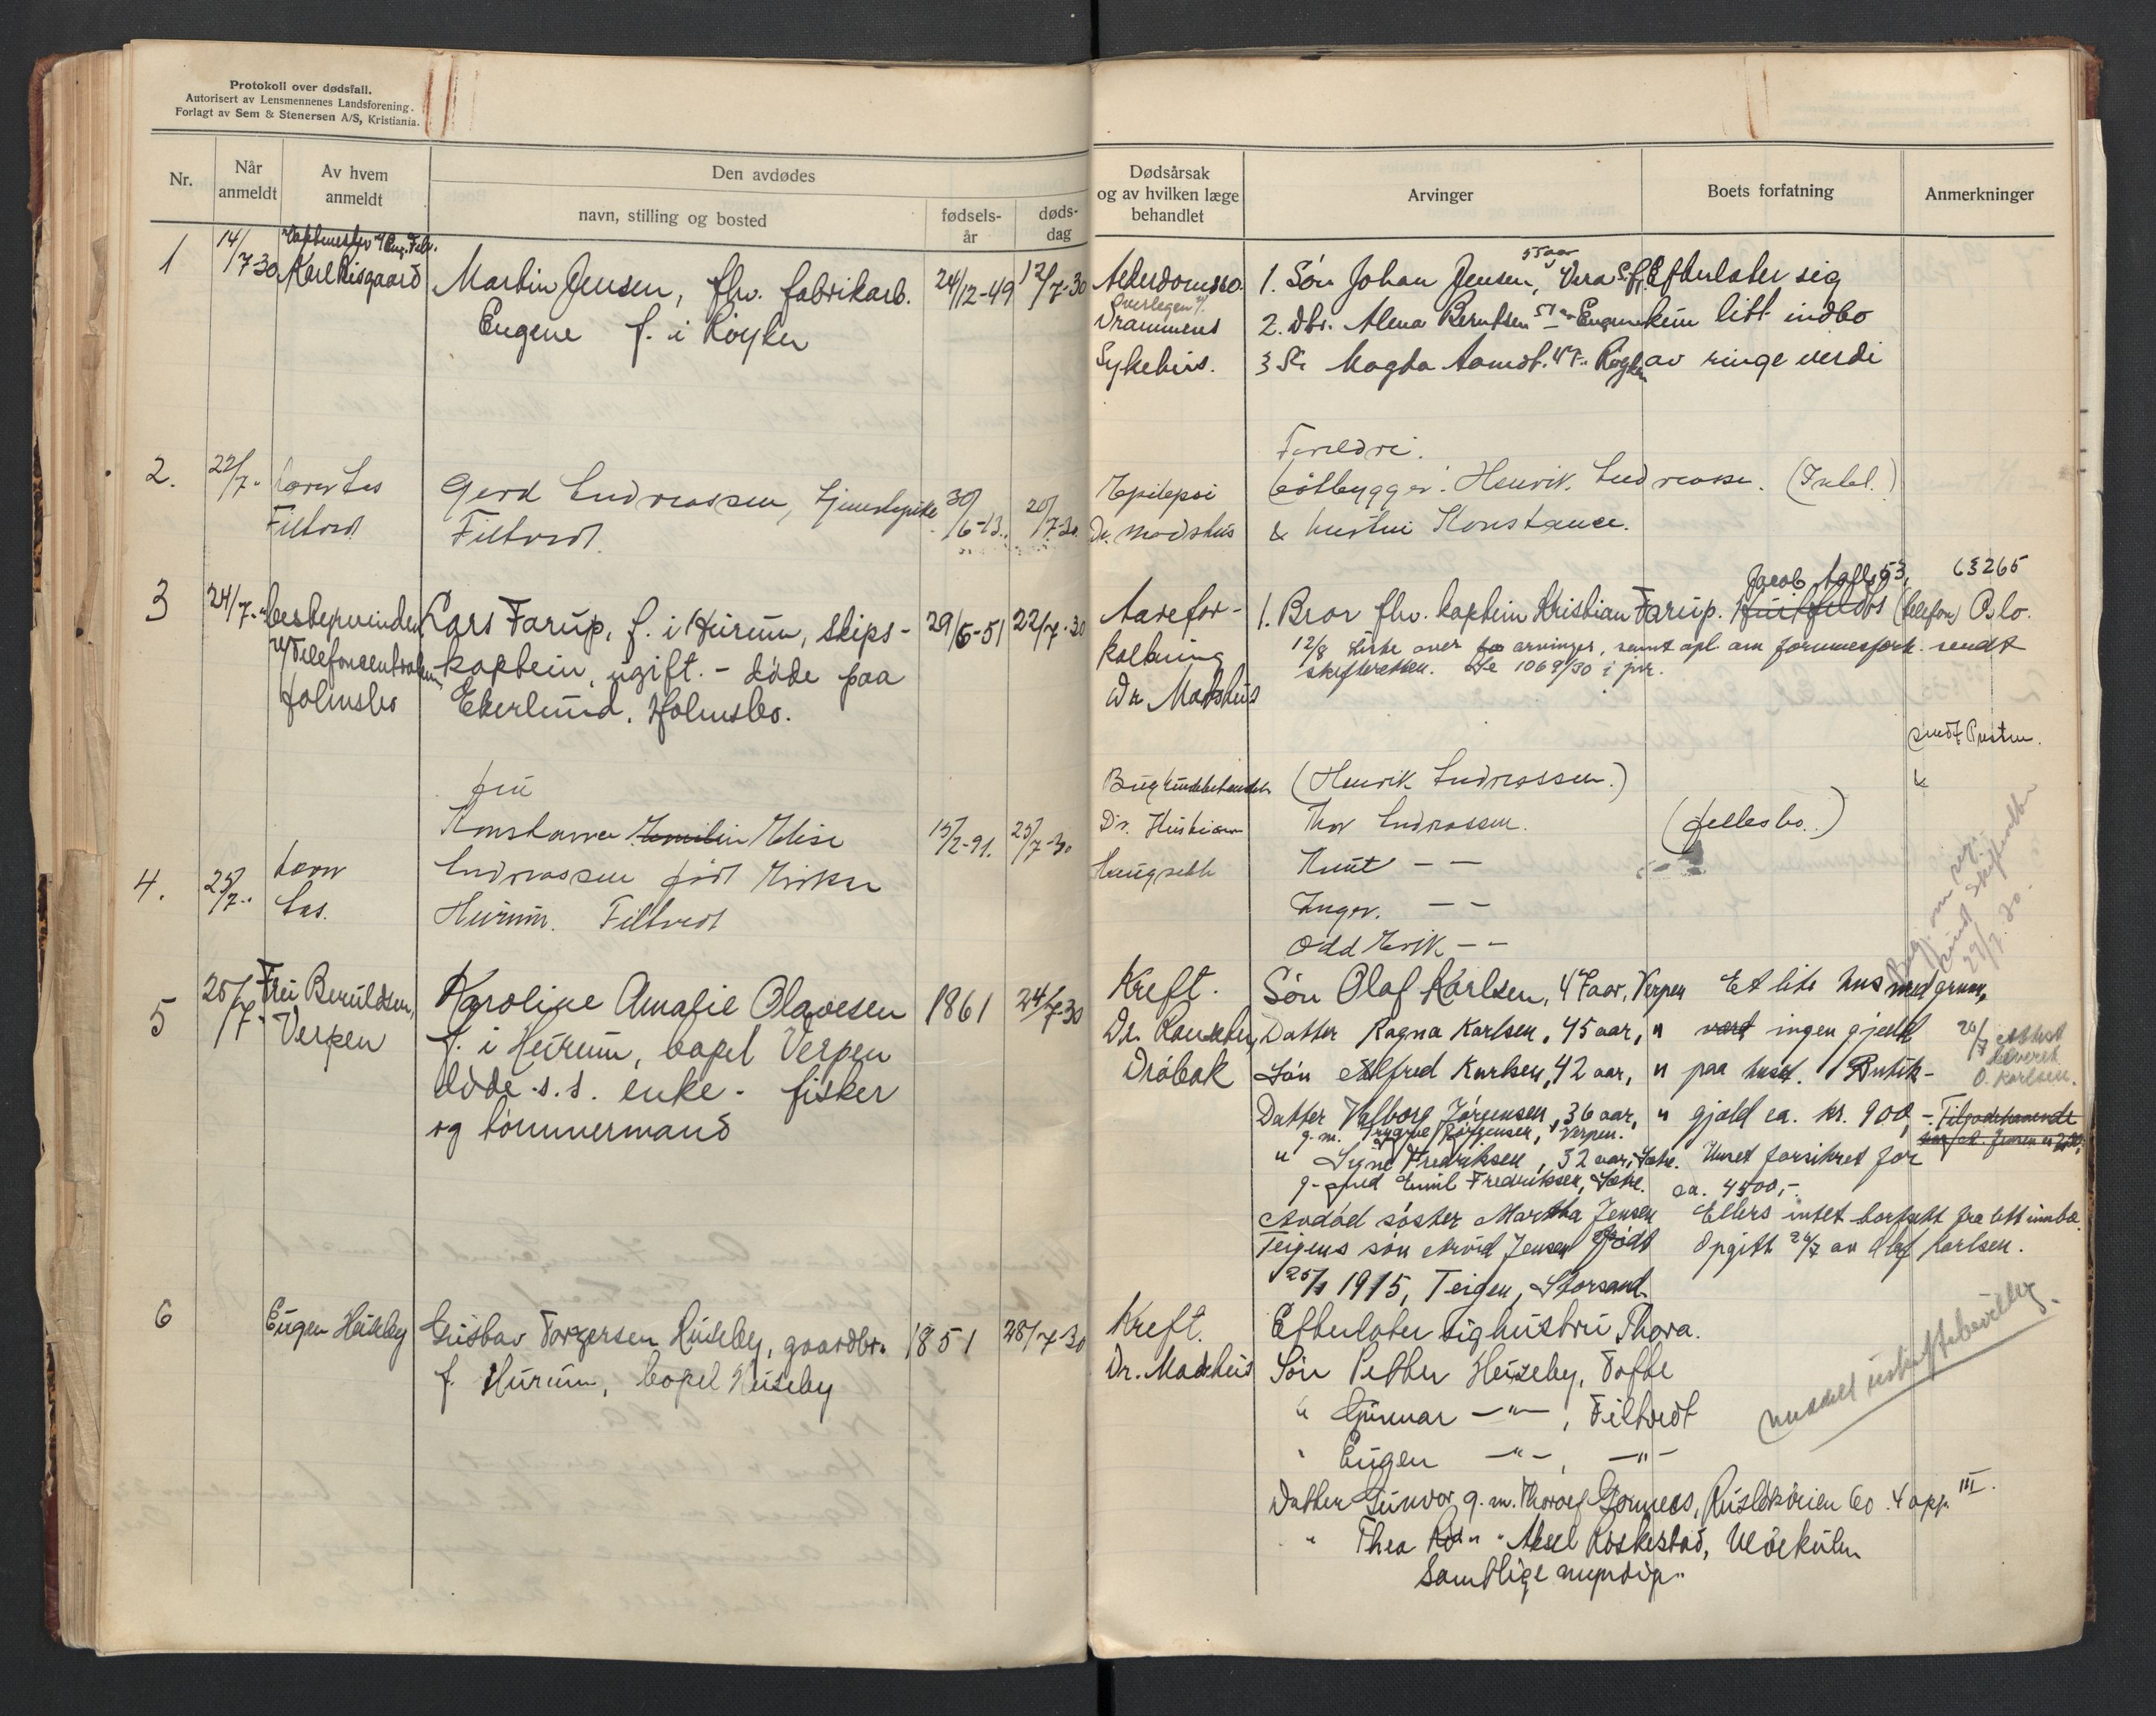 Protokoll over dødsfall.
Autorisert av Lensmennenes Landsforening.
Forlagt av Sem & Stenersen A/S, Kristiania.
Nr.
Når anmeldt
Av hvem anmeldt
Den avdødes
navn, stilling og bosted
fødsels-år
døds-dag
Dødsårsak og av hvilken læge behandlet
Arvinger
Boets forfatning
Anmerkninger
1
14/7-30
Karl Risgaard
Martin Jensen, fhv. fabrikarb.
Eugene f. i Røyken
24/12-49
12/7-30
Alderdomssv.
Overlegen v/
Drammens
Sykehus.
1. Søn Johan Jensen, 55 aar
2. Dtr. Alena Berntsen 51 aar
3 Magda Aamodt. 47 Røyken
Efterlater sig
kun litt indbo
av ringe verdi
2.
22/7-"
Filtvedt
Gerd Andreassen, tjenestepike
Filtvedt.
30/6-13.
20/7-30.
Epilepsi
Dr. Madshus
Foreldre.
Båtbygger Henrik Andreassen.
& hustru Konstance.
3
24/7-"
bestyrerinden
v/ Telefoncentralen
Holmsbo
Lars Farup, f. i Hurum, skips-
kaptein, ugift. - døde paa
Ekerlund, Holmsbo.
29/6-51
22/7-30
Aarefor-
kalkning
Dr. Madshus
1. Bror fhv. kaptein Kristian Farup.
Jacob Aalls g 53,
Huitfeldts (telefon) Oslo.
63265
12/8 Liste over arvinger, samt opl. om formuesforh. sendt
skifteretten. 1069/30 i jnr.
sendt Presten.
4.
25/7-"
Fru
Konstance Emilie Elise
Andreassen født Eriksen
Hurum. Filtvedt
15/2-91.
23/7-30
Dr. Kristian
Haugseth
(Henrik Andreassen.)
Thor Andreassen.
Knut — —
Inger. — —
Odd Erik — —
(fellesbo.)
27/7.30.
5
25/7-"
Fru Beruldsen,
Verpen
Karoline Amalie Olavesen
f. i Hurum, bopel Verpen
døde s.s. enke - fisker
og tømmermand
1861
24/7-30
Kreft.
Drøbak
Søn Olaf Karlsen, 47 aar, Verpen
Datter Ragna Karlsen, 45 aar, "
Søn Alfred Karlsen, 42 aar, "
Datter Valborg Jørgensen, 36 aar, "
g. m. Trygve Jørgensen, Verpen.
" Signe Fredriksen, 32 aar, Sætre.
g. med Emil Fredriksen, Sætre.
Avdød søster Martha Jensen
Teigens søn Arvid Jensen født
25/1 1915, Teigen, Storsand.
Et lite hus med grunn,
ingen gjeld
paa huset. Butik-
gjæld ca. kr. 900,-
Huset forsikret for
ca. 4500,-.
Ellers intet bortsett fra litt innbo.
Opgitt 26/7 av Olaf Karlsen.
26/7 attest
leveret
O. Karlsen.
Tilgodehavende
6
Eugen Huseby
Gustav Torgersen Huseby, gaardbr.
f. Hurum, bopel Huseby
1851
25/7-30
Kreft.
Dr. Madshus
Efterlater sig hustru Thora.
Søn Petter Huseby, Tofte
" Gunnar —"—, Filtvedt
" Eugen —"—, —"—
Datter Gunvor, g. m. Thorolf Gornæs, Ruseløkveien 60. 4 opg. III.
" Thea " " Aksel Roskestad,
Samtlige myndige.
uskiftebevilling.